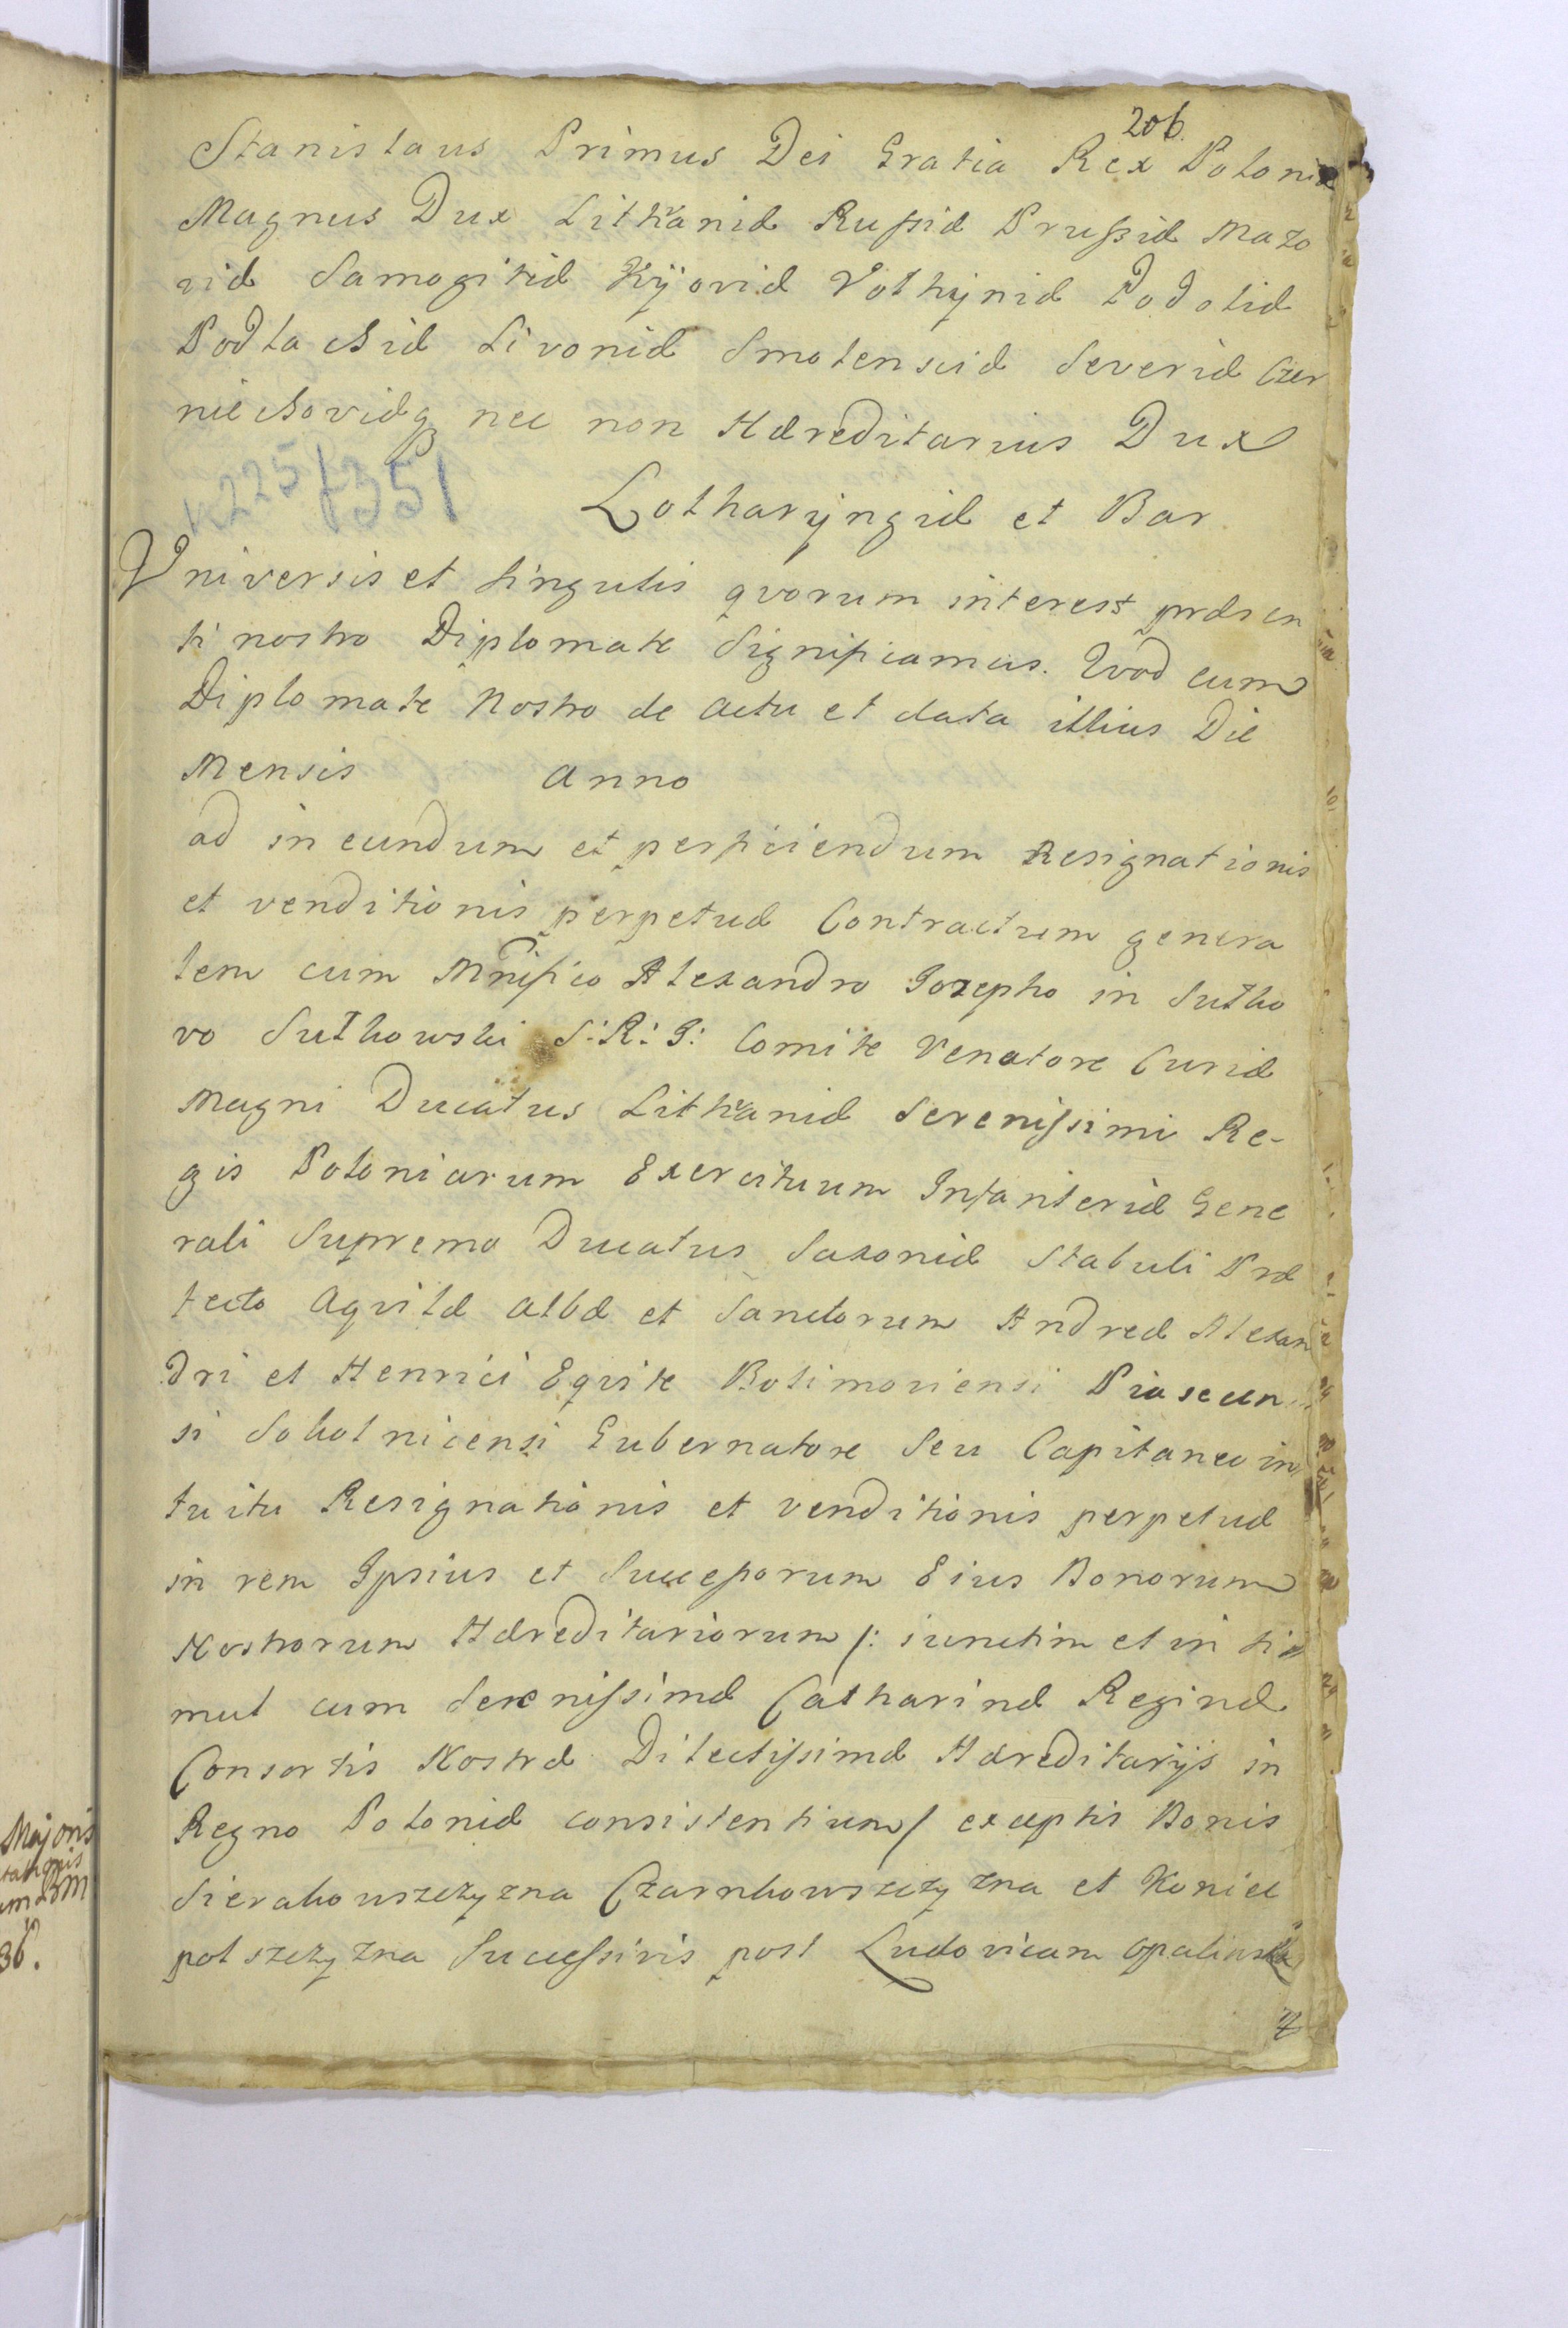 206.
Stanislaus Primus Dei Gratia Rex Poloniæ
Magnus Dux Lithvaniæ Russiæ Prussiæ Mazo
viæ Samogitiæ Kijoviæ Volhÿniæ Podoliæ
Podlachiæ Livoniæ Smolensciæ Severiæ Czer
niechoviæq nec non Hæreditarius Dux
k225 f351
Lotharÿngiæ et Bar
Universis et Singulis qvorum interest præsen
ti nostro Diplomate Significamus. Qvod cum
Diplomate Nostro de actu et data illius Die
Mensis anno
ad in eundum et perficiendum Resignationis
et venditionis perpetuæ Contractum genera
lem cum Mnifico Alexandro Jozepho in Sulko
vo Sulkowski S: R: J: Comite Venatore Curiæ
Magni Ducatus Lithvaniæ Serenissimi Re-
gis Poloniarum Exercituum Infanteriæ Gene
rali Supremo Ducatus Saxoniæ Stabuli Præ
fecto Aqvilæ albæ et Sanctorum Andreæ Alexan
dri et Henrici Eqvite Bolimoviensi Piasecen
si Sokolnicensi Gubernatore Seu Capitaneo in
tuitu Resignationis et venditionis perpetuæ
in rem Ipsius et Successorum Eius Bonorum
Nostrorum Hæreditariorum /: iunctim et in si
mul cum Serenissimæ Catharinæ Reginæ
Consortis Nostræ Dilectissimæ Hæreditarÿs in
Regno Poloniæ consistentium / exceptis Bonis
Sierakowszczyzna Czarnkowszczyzna et Koniec
polszczyzna Successivis post Ludovicam Opalinska
Majoris
36.